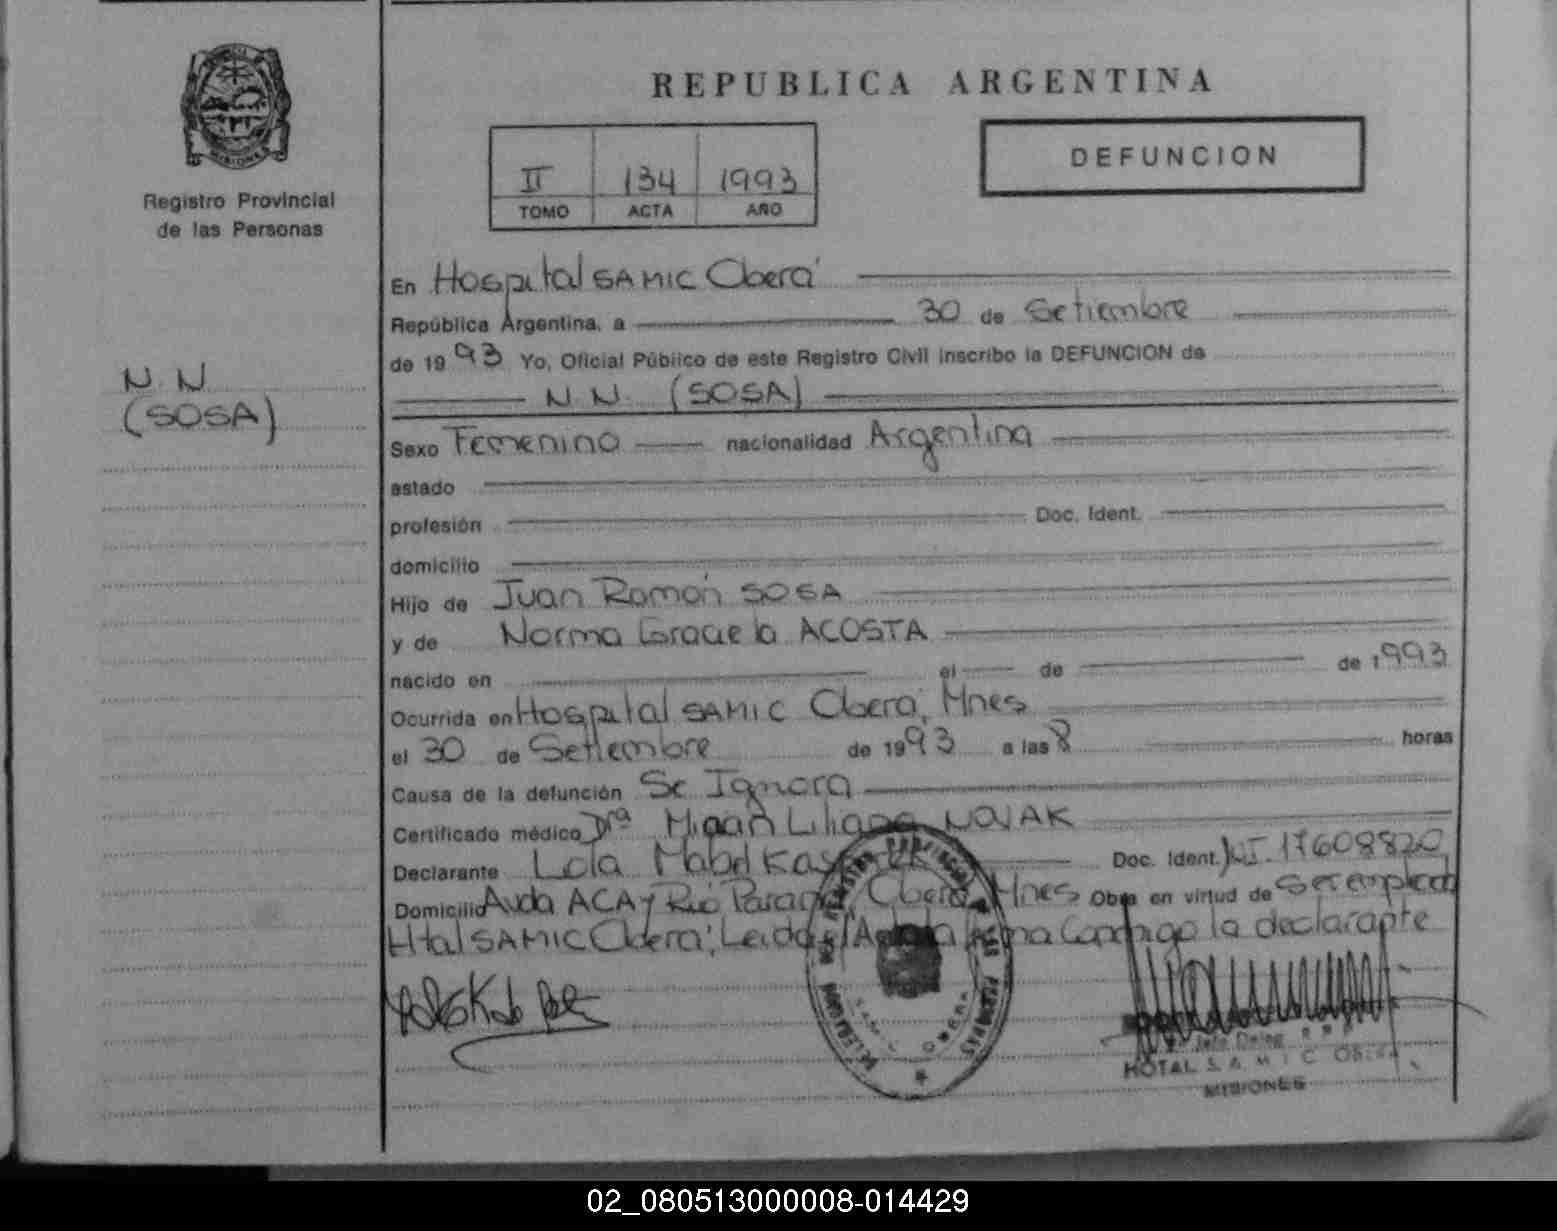 MISIONES
Registro Provincial
de las Personas
N.N.
(SOSA)
REPUBLICA ARGENTINA
II 134 1993
TOMO ACTA AÑO
DEFUNCION
En Hospital SAMIC Oberá
República Argentina, a 30 de Setiembre
de 1993 Yo, Oficial Público de este Registro Civil inscribo la DEFUNCION de
N.N. (SOSA)
Sexo Femenino nacionalidad Argentina
estado
profesión Doc. Ident.
domicilio
Hijo de Juan Ramón SOSA
y de Norma Graciela ACOSTA
nacido en el de de 1993
Ocurrida en Hospital SAMIC Oberá, Mnes
el 30 de Setiembre de 1993 a las 8 horas
Causa de la defunción Se Ignora
Certificado médico Dra Liliana NOVAK
Declarante Lola Mabel Doc. Ident. 17608820
Domicilio Avda ACA y Río Paraná Oberá Mnes Obra en virtud de ser
Htal SAMIC Oberá; Leida el Acta la firma Conmigo la declarante
HOTAL S.A.M.I.C OBERA
MISIONES
02_080513000008-014429